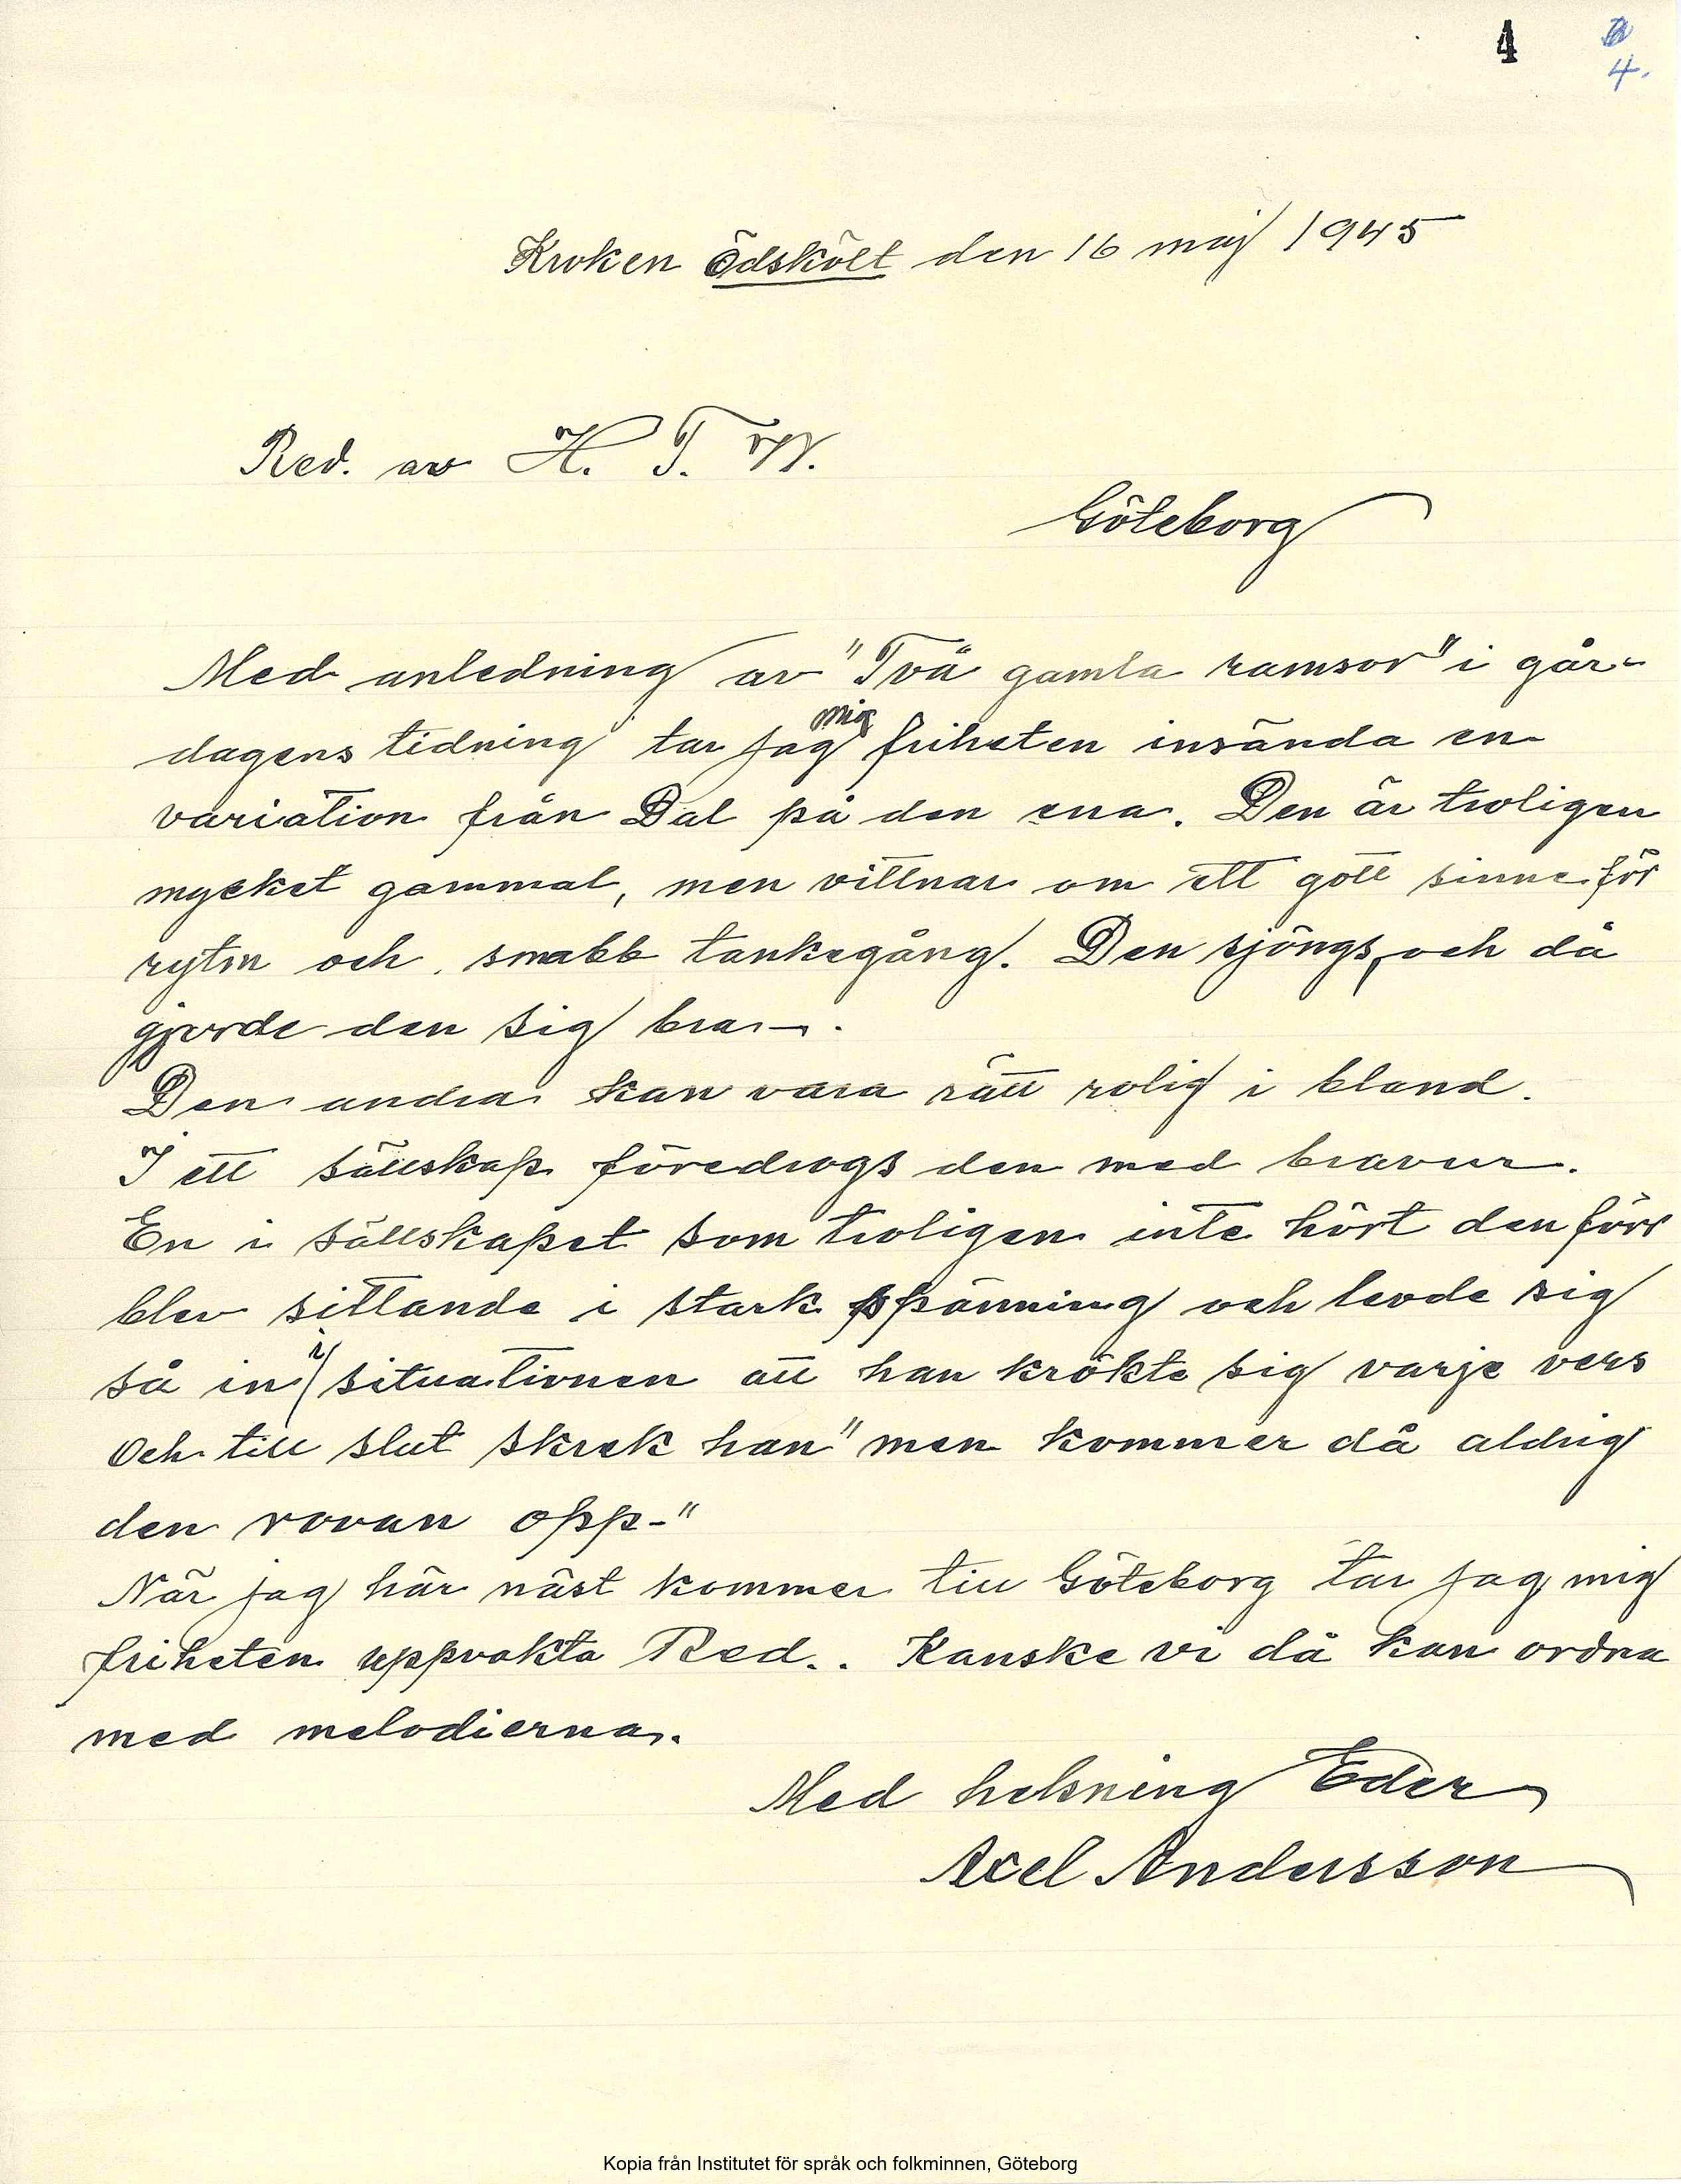 4
4.
Kroken Ödskölt den 16 maj 1945
Red. av H. T. W.
Göteborg
Med anledning av "Två gamla ramsor" i går-
dagens tidning tar jag mig friheten insända en
variation från Dal på den ena. Den är troligen
mycket gammal, men vittnar om ett gott sinne för
rytm och snabb tankegång. Den sjöngs, och då
gjorde den sig bra —.
Den andra kan vara rätt rolig i bland.
I ett sällskap föredrogs den med bravur.
En i sällskapet som troligen inte hört den förr
blev sittande i stark spänning och levde sig
så in i situationen att han krökte sig varje vers
Och till slut skrek han "men kommer då aldrig
den rovan opp-"
När jag här näst kommer till Göteborg tar jag mig
friheten uppvakta Red.. Kanske vi då kan ordna
med melodierna.
Med helsning Eder
Axel Andersson
Kopia från Institutet för språk och folkminnen, Göteborg